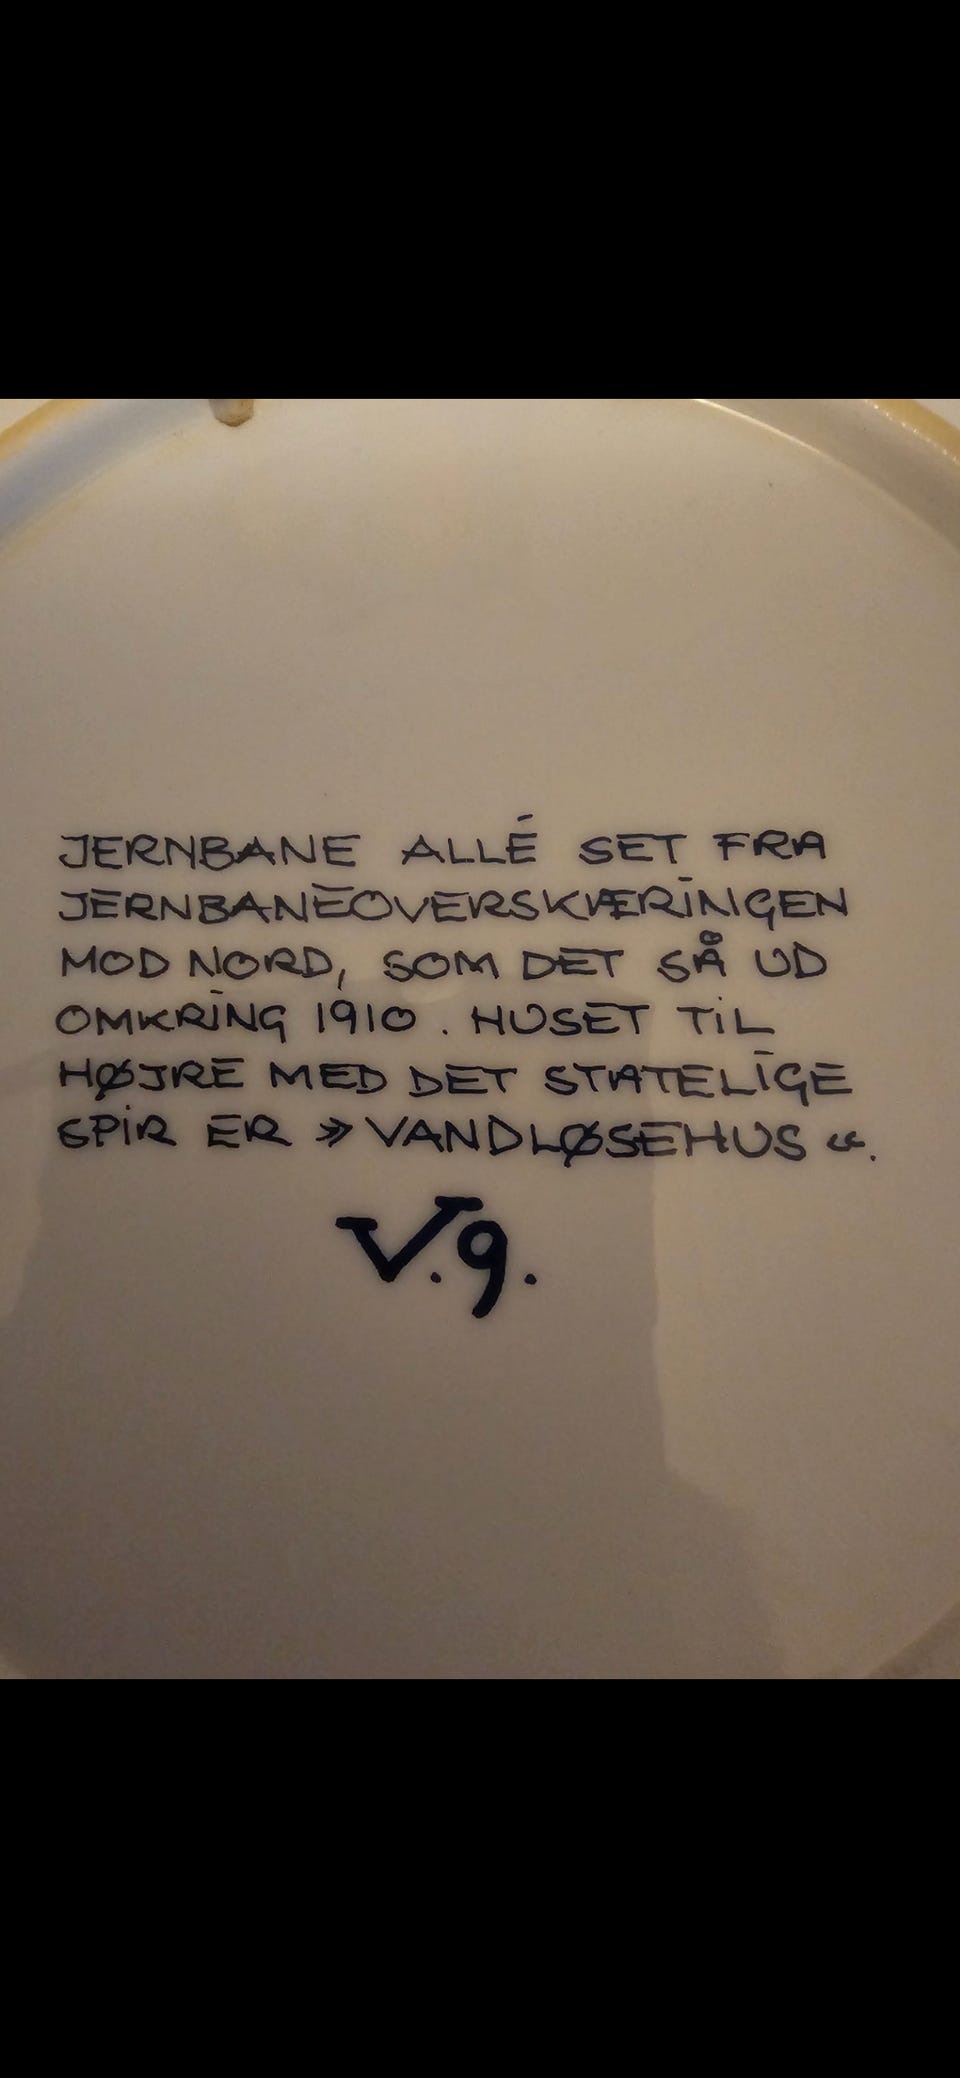 JERNBANE ALLÉ SET FRA
JERNBANEOVERSKÆRINGEN
MOD NORD, SOM DET SÅ UD
OMKRING 1910. HUSET TIL
HØJRE MED DET STATELIGE
SPIR ER »VANDLØSEHUS«.
V.g.